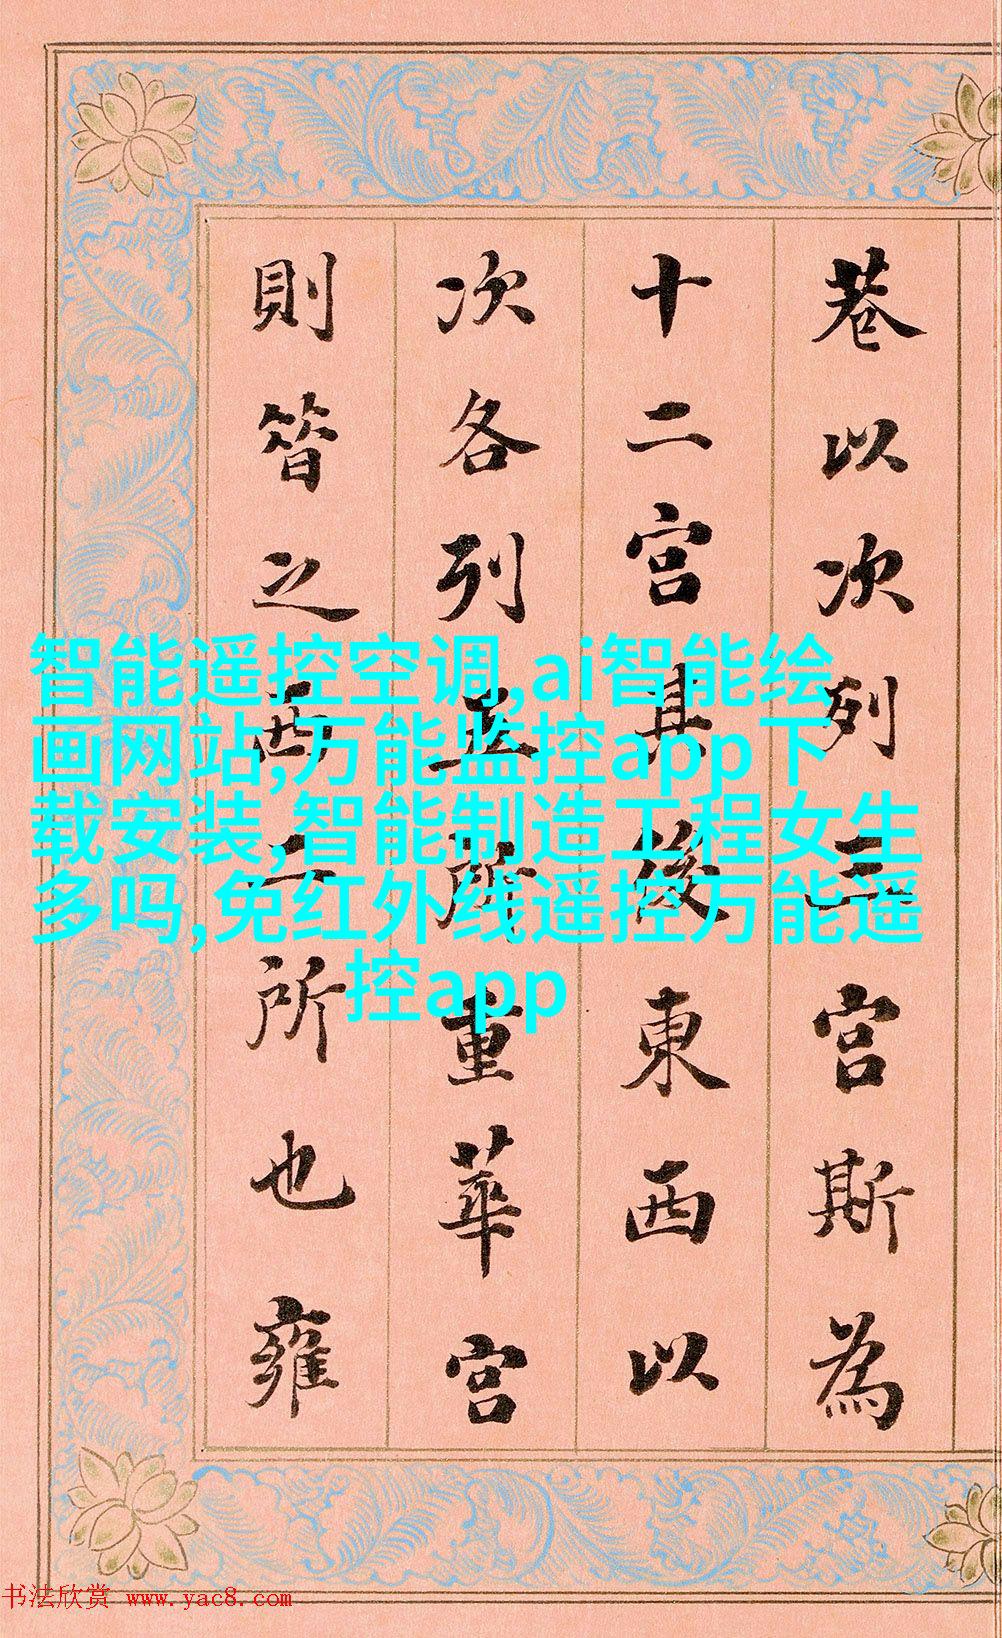 巷以次列三宫斯為
十二宫其後東西以
次各列五所重華宫
則㫺之西二所也雍
智能遥控空调,ai智能绘
画网站,万能监控app下
载安装,智能制造工程女生
多吗,免红外线遥控万能遥
控app
书法欣赏 www.yac8.com